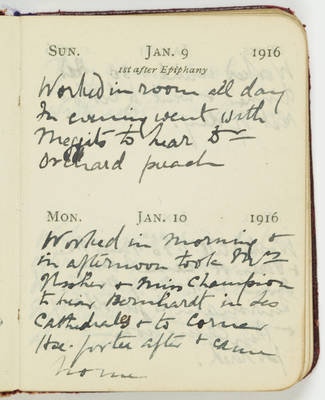 SUN. JAN. 9 1916
1st after Epiphany
Worked in room all day
In evening went with
Meggits to hear Dr
Orchard preach
MON. JAN. 10 1916
Worked in morning &
in afternoon took Mrs
& Miss Champion
to hear Bernhardt in Les
Cathedrals & to Corner
Hse. for tea after & came
home